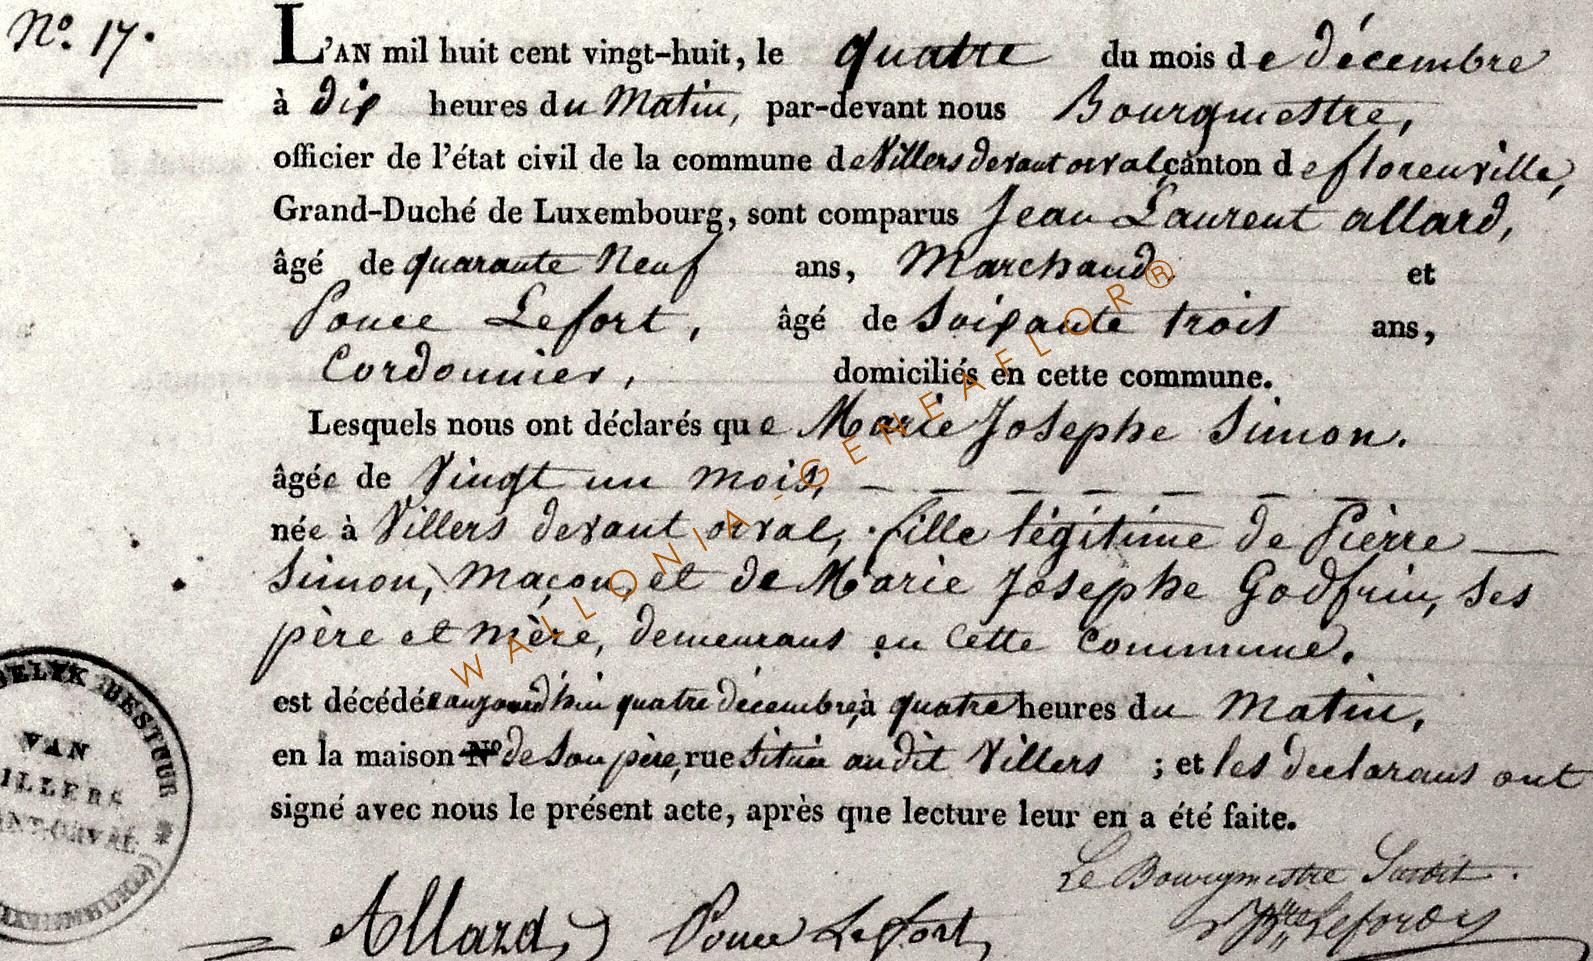 Nº. 17.
L'AN mil huit cent vingt-huit, le quatre du mois de décembre
à dix heures du Matin, par-devant nous Bourgmestre,
officier de l'état civil de la commune de Villers devant orval, canton de florenville,
Grand-Duché de Luxembourg, sont comparus Jean Laurent allard,
âgé de quarante Neuf ans, Marchand et
Ponce Lefort, âgé de Soixante trois ans,
Cordonnier, domiciliés en cette commune.
Lesquels nous ont déclarés que Marie Josephe Simon.
âgée de Vingt un mois,
née à Villers devant orval, fille légitime de Pierre
Simon, Maçon, et de Marie Josephe Godfrin, ses
père et mère, demeurans en cette commune.
est décédée aujourd'hui quatre décembre, à quatre heures du Matin,
en la maison Nº de son père, rue située audit Villers ; et les déclarans ont
signé avec nous le présent acte, après que lecture leur en a été faite.
Le Bourgmestre Susdit.
Allard Ponce Lefort
WALLONIA-GENEAFLOR®
BESTUUR
VAN